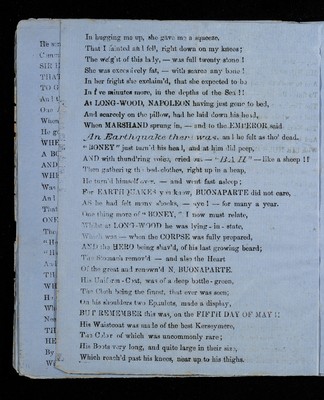 In hugging me up, she gave me a squeeze,
That I fainted and fell, right down on my knees;
The we'g't of this lady, — was full twenty stone!
She was excessively fat, — with scarce any bone!
In her fright she exclaim'd, that she expected to be
In five minutes more, in the depths of the Sea!!
At LONG-WOOD, NAPOLEON having just gone to bed,
And scarcely on the pillow, had he laid down his head,
When MARSHAND sprung in, — and to the EMPEROR, said
An Earthquake there was, as I he felt as tho' dead.
" BONEY " just turn'd his head, and at him did peep,
AND with thund'ring voice, cried out — " BAH " — like a sheep!!
Then gathering the bed-clothes, right up in a heap,
He turn'd himself over, — and went fast asleep;
For EARTHQUAKES you know, BUONAPARTE did not care,
As he had felt many shocks, — aye! — for many a year.
One thing more of " BONEY, " I now must relate,
While at LONG-WOOD he was lying-in-state,
Which was — when the CORPSE was fully prepared,
AND the HERO being shav'd, of his last growing beard;
The Stomach remov'd — and also the Heart
Of the great and renown'd N. BUONAPARTE.
His Uniform-Coat, was of a deep bottle-green,
The Cloth being the finest, that ever was seen;
On his shoulders two Epaulets, made a display,
BUT REMEMBER this was, on the FIFTH DAY OF MAY!!
His Waistcoat was made of the best Kerseymere,
The Color of which was uncommonly rare;
His Boots very long, and quite large in their size,
Which reach'd past his knees, near up to his thighs.